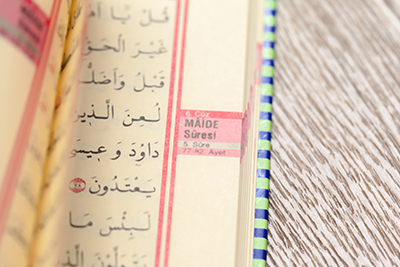 قُلْ يَٓا اَ
غَيْرَ الْحَقِّ
قَبْلُ وَاَضَلُّ
لُعِنَ الَّذ۪ينَ
دَاوُدَ وَع۪يسَى
يَعْتَدُونَ ٧٨
لَبِئْسَ مَا
يَتَوَلَّوْنَ الَّذ۪ي
6. Cüz
MÂİDE
Sûresi
5. Sûre
77-82. Ayet